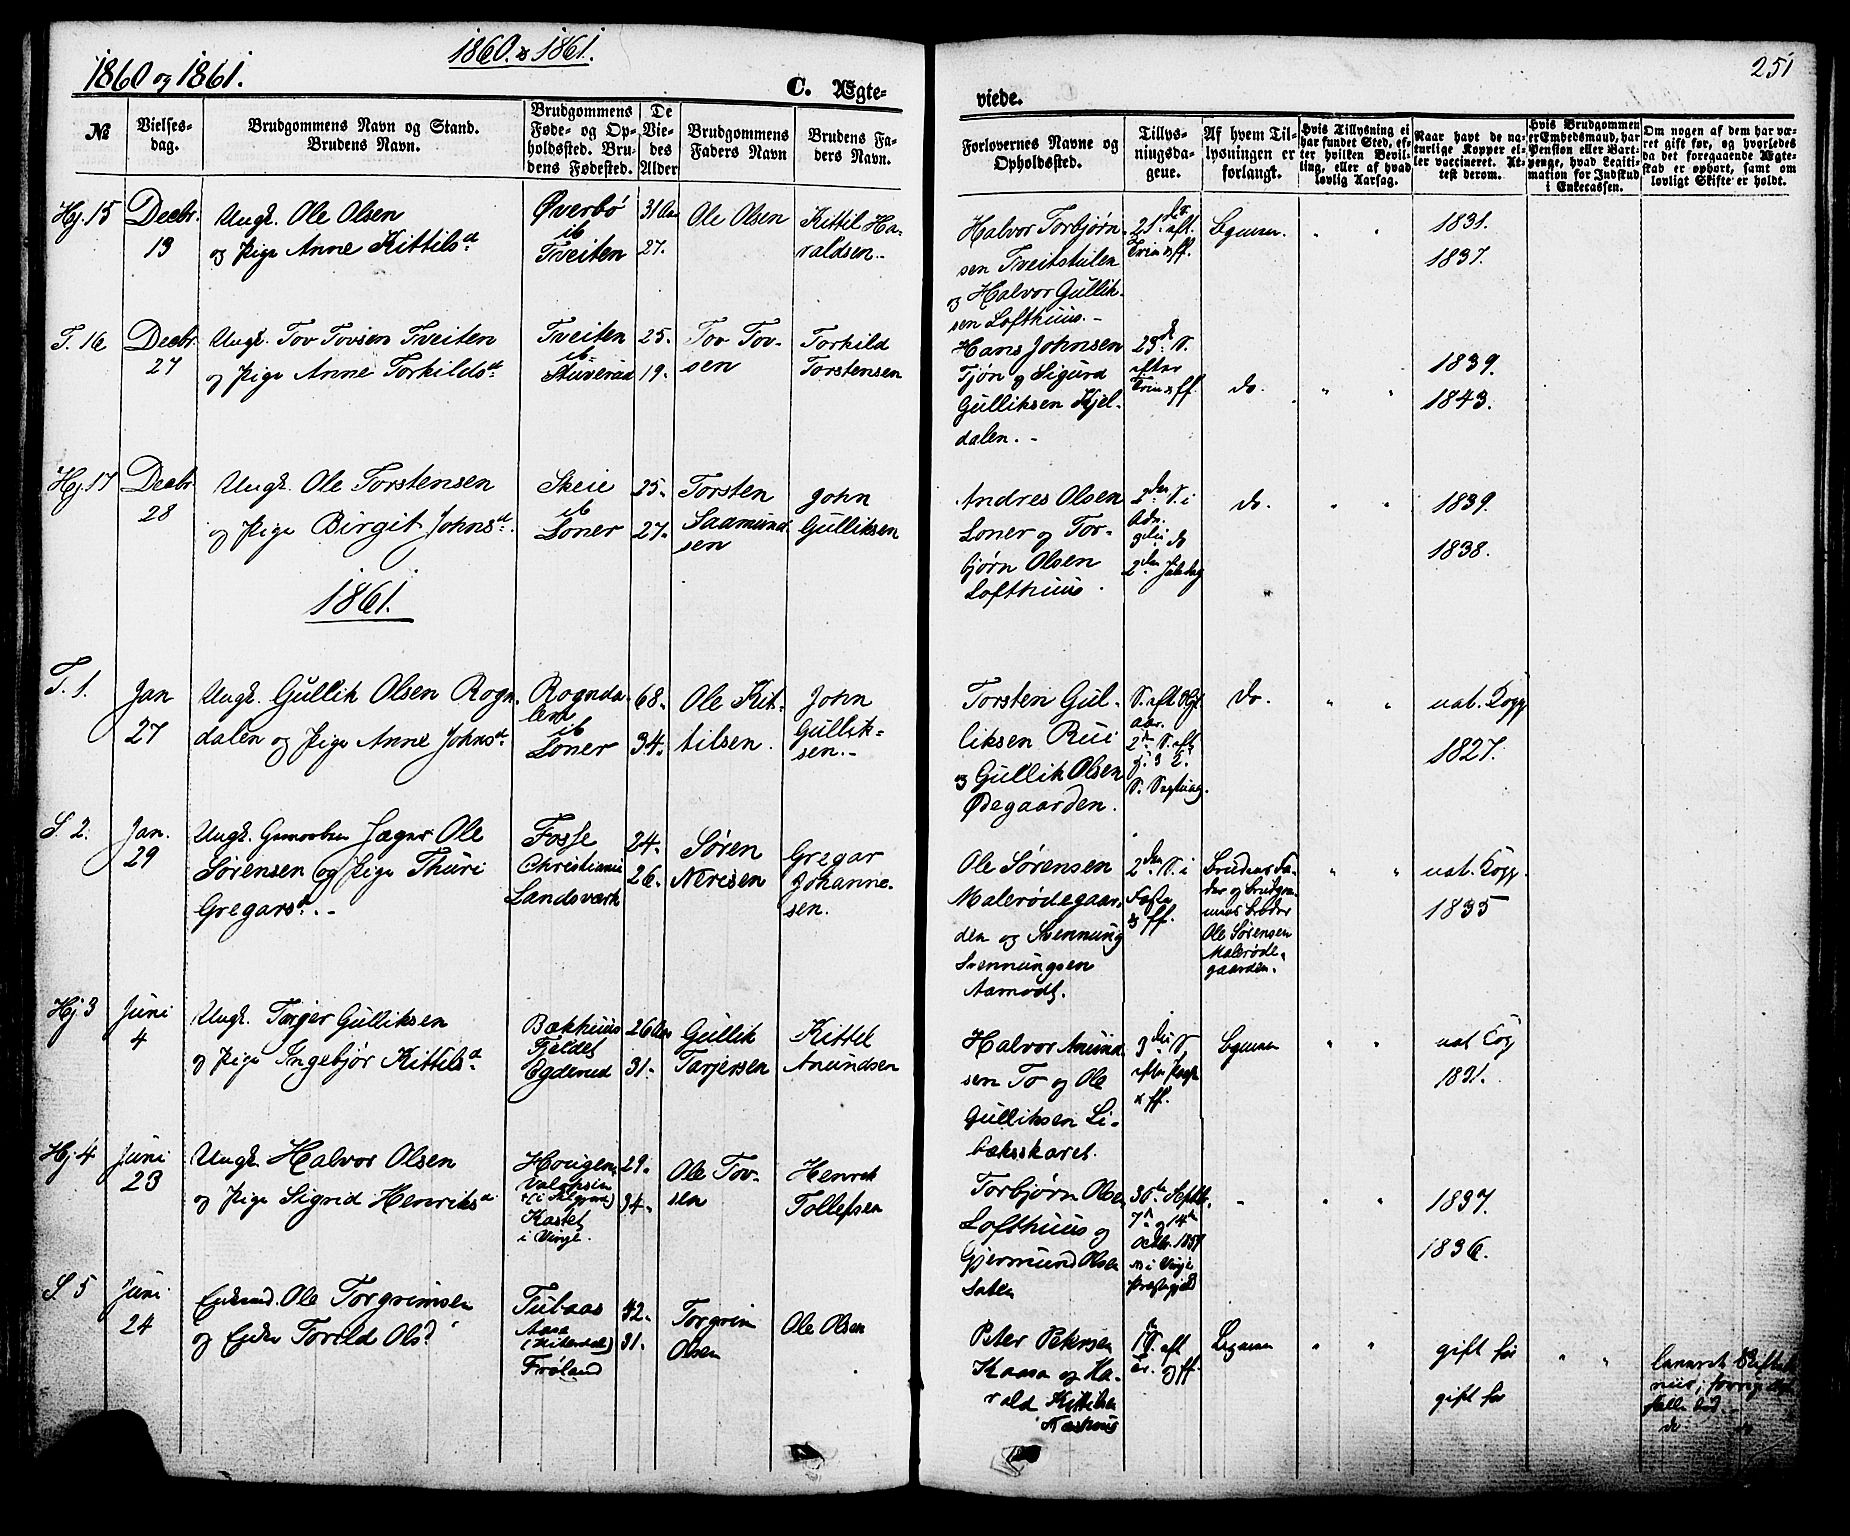 1860 og 1861.
1860. & 1861.
C. Ægte-
viede.
251
No
Vielses-
dag.
Brudgommens Navn og Stand.
Brudens Navn.
Brudgommens
Føde- og Op-
holdssted. Bru-
dens Fødested.
De
Vie-
des
Alder
Brudgommens
Faders Navn
Brudens Fa-
ders Navn.
Forlovernes Navne og
Opholdssted.
Tillys-
ningsda-
gene.
Af hvem Til-
lysningen er
forlangt.
Hvis Tillysning ei
har fundet Sted, ef-
ter hvilken Bevil-
ling, eller af hvad
lovlig Aarsag.
Naar havt de na-
turlige Kopper el-
ler vaccineret. At-
test derom.
Hvis Brudgommen
er Embedsmand, har
Pension eller Vart-
penge, hvad Legiti-
mation for Indskud
i Enkecassen.
Om nogen af dem har væ-
ret gift før, og hvorledes
da det foregaaende Ægte-
skab er ophørt, samt om
lovligt Skifte er holdt.
Hj. 15
Decbr.
13
Ungk. Ole Olsen
og Pige Anne Kittilsd.
Øverbø
ib
Tveiten
31 Aar
27.
Ole Olsen
Kittil Ha-
raldsen.
Halvor Torbjørn-
sen Tveitstulen
og Halvor Gullik-
sen Lofthuus.
25. S. aft.
Trin & ff.
1831.
1837.
T. 16
Decbr
27
Ungk. Tov Tovsen Tveiten
og Pige Anne Torkildsd.
Tveiten
ib
Stuverud
25.
19.
Tov Tov-
sen
Torkild
Torstensen
Hans Johnsen
Tjøn og Sigurd
Gulliksen Kjel-
dalen.
23d. S.
efter
Trin & ff.
do.
1839.
1843.
Hj. 17
Decbr
28
Ungk. Ole Torstensen
og Pige Birgit Johnsd.
Skeie
ib
Loner
25.
27.
Torsten
Saamund-
sen
John
Gulliksen
Andres Olsen
Loner og Tor-
bjørn Olsen
Lofthuus.
2den S. i
Adv.
3die do
2den Juledag
do.
1839.
1838.
1861.
T. 1.
Jan
27
Ungk. Gullik Olsen Rogn-
dalen og Pige Anne Johnsd.
Rognda-
len
ib
Loner
68.
34.
Ole Kit-
tilsen.
John
Gullik-
sen.
Torsten Gul-
liksen Rui
og Gullik Olsen
Ødegaarden.
do.
nat. Kopp
1827.
S. 2.
Jan.
29
Ungk. Jæger Ole
Sørensen og Pige Thuri
Gregarsd.
Fosse
Christiania
Landsværk
24.
26.
Søren
Nerisen
Gregar
Johanne-
sen.
Ole Sørensen
Malerødegaar-
den og Svennung
Svennungsen
Aamodt.
2den S. i
Faste
& ff.
Brudens Fa-
der og Brudgom-
mens Broder
Ole Sørensen
Malerøde-
gaarden.
nat. Kopp.
1835
Hj 3
Juni
4
Ungk. Torjer Gulliksen
og Pige Ingebjør Kittilsd.
Bækhuus
Fjeldet
Egderud
26 Aar
31.
Gullik
Tarjersen
Kittel
Anundsen
Halvor Anund-
sen To og Ole
Gulliksen Li-
bæksskaret.
3die S
efter Paask
& ff.
nat Kop
1831.
Hj. 4
Juni
23
Ungk. Halvor Olsen
og Pige Sigrid Henriksd.
Hougen
Kastet
i Vinje.
29.
34.
Ole Tov-
sen
Henrik
Tollefsen
Torbjørn Olsen
Lofthuus og
Gjermund Olsen
30te Septbr,
7de og 14de
Octbr. 1857
i Vinje
Præstegjeld
1837.
1836.
S 5
Juni
24
Enkemd. Ole Torgrimsen
og Enke Torild Olsd
Tubaas
Aasa
(Hitterdal)
Frøland
42.
31.
Torgrim
Olsen
Ole Olsen
Peter Petersen
Kaasa og Ha-
rald Kittilsen
gift før
gift før
do